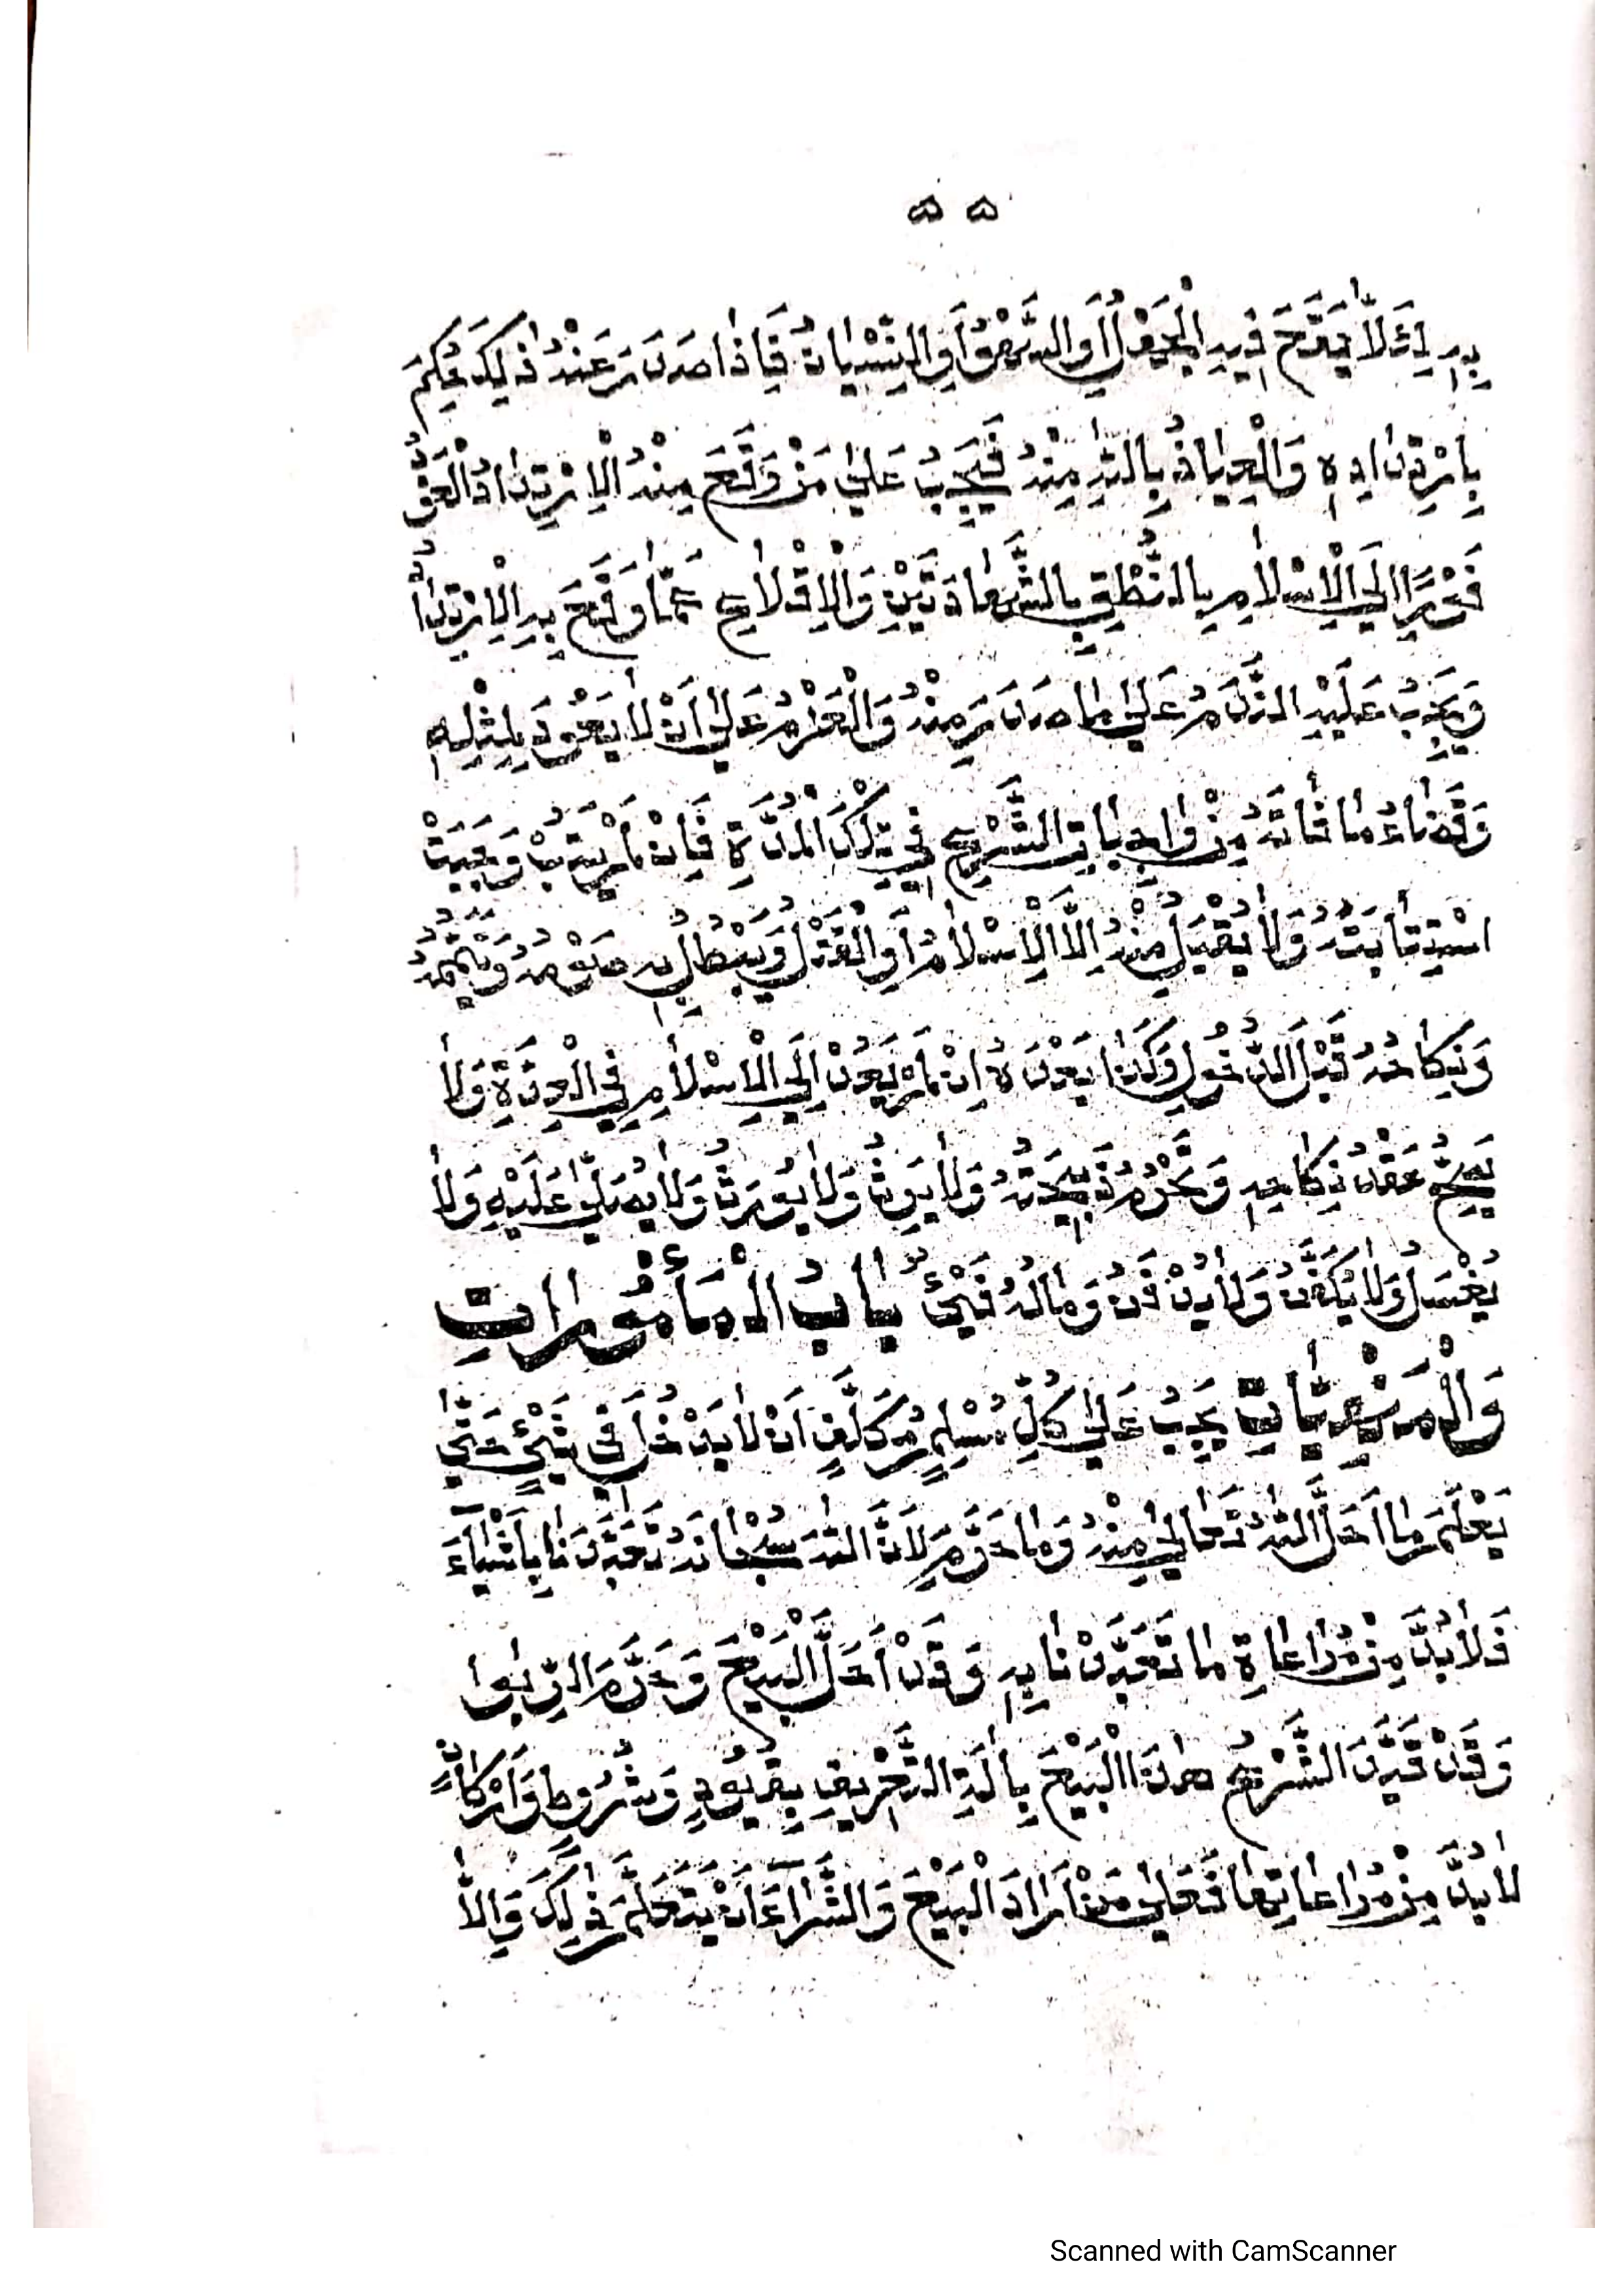 ٥٥
بِهِ لِئَلَّا يَقَعَ فِيهِ الْجَهْلُ أَوِ السَّهْوُ أَوِ النِّسْيَانُ فَإِذَا صَدَرَ عَنْهُ ذٰلِكَ حُكِمَ
بِارْتِدَادِهِ وَالْعِيَاذُ بِاللهِ مِنْهُ فَيَجِبُ عَلٰى مَنْ وَقَعَ مِنْهُ الْاِرْتِدَادُ الْعَوْدُ
فَوْرًا اِلَى الْاِسْلَامِ بِالنُّطْقِ بِالشَّهَادَتَيْنِ وَالْاِقْلَاعِ عَمَّا وَقَعَ بِهِ الْاِرْتِدَادُ
وَيَجِبُ عَلَيْهِ النَّدَمُ عَلٰى مَا صَدَرَ مِنْهُ وَالْعَزْمُ عَلٰى اَنْ لَا يَعُودَ لِمِثْلِهِ
وَقَضَاءُ مَا فَاتَهُ مِنْ وَاجِبَاتِ الشَّرْعِ فِي تِلْكَ الْمُدَّةِ فَاِنْ لَمْ يَتُبْ وَجَبَتْ
اسْتِتَابَتُهُ وَلَا يُقْبَلُ مِنْهُ اِلَّا الْاِسْلَامُ اَوِ الْقَتْلُ وَيَبْطُلُ بِهِ صَوْمُهُ وَتَيَمُّمُهُ
وَنِكَاحُهُ قَبْلَ الدُّخُولِ وَكَذَا بَعْدَهُ اِنْ لَمْ يَعُدْ اِلَى الْاِسْلَامِ فِي الْعِدَّةِ وَلَا
يَصِحُّ عَقْدُ نِكَاحِهِ وَتَحْرُمُ ذَبِيحَتُهُ وَلَا يَرِثُ وَلَا يُورَثُ وَلَا يُصَلّٰى عَلَيْهِ وَلَا
يُغْسَلُ وَلَا يُكَفَّنُ وَلَا يُدْفَنُ وَمَالُهُ فَيْئٌ بَابُ الْمَأْمُورَاتِ
وَالْمَنْهِيَّاتِ يَجِبُ عَلٰى كُلِّ مُسْلِمٍ مُكَلَّفٍ اَنْ لَا يَدْخُلَ فِي شَيْئٍ حَتّٰى
يَعْلَمَ مَا اَحَلَّ اللهُ تَعَالٰى مِنْهُ وَمَا حَرَّمَ لِاَنَّ اللهَ سُبْحَانَهُ تَعَبَّدَنَا بِاَشْيَآءَ
فَلَا بُدَّ مِنْ مُرَاعَاةِ مَا تَعَبَّدْنَا بِهِ وَقَدْ اَحَلَّ الْبَيْعَ وَحَرَّمَ الرِّبٰوا
وَقَدْ قَيَّدَ الشَّرْعُ هٰذَا الْبَيْعَ بِاٰلَةِ التَّعْرِيفِ بِقُيُودٍ وَشُرُوطٍ وَاَرْكَانٍ
لَا بُدَّ مِنْ مُرَاعَاتِهَا فَعَلٰى مَنْ اَرَادَ الْبَيْعَ وَالشِّرَآءَ اَنْ يَتَعَلَّمَ ذٰلِكَ وَاِلَّا
Scanned with CamScanner